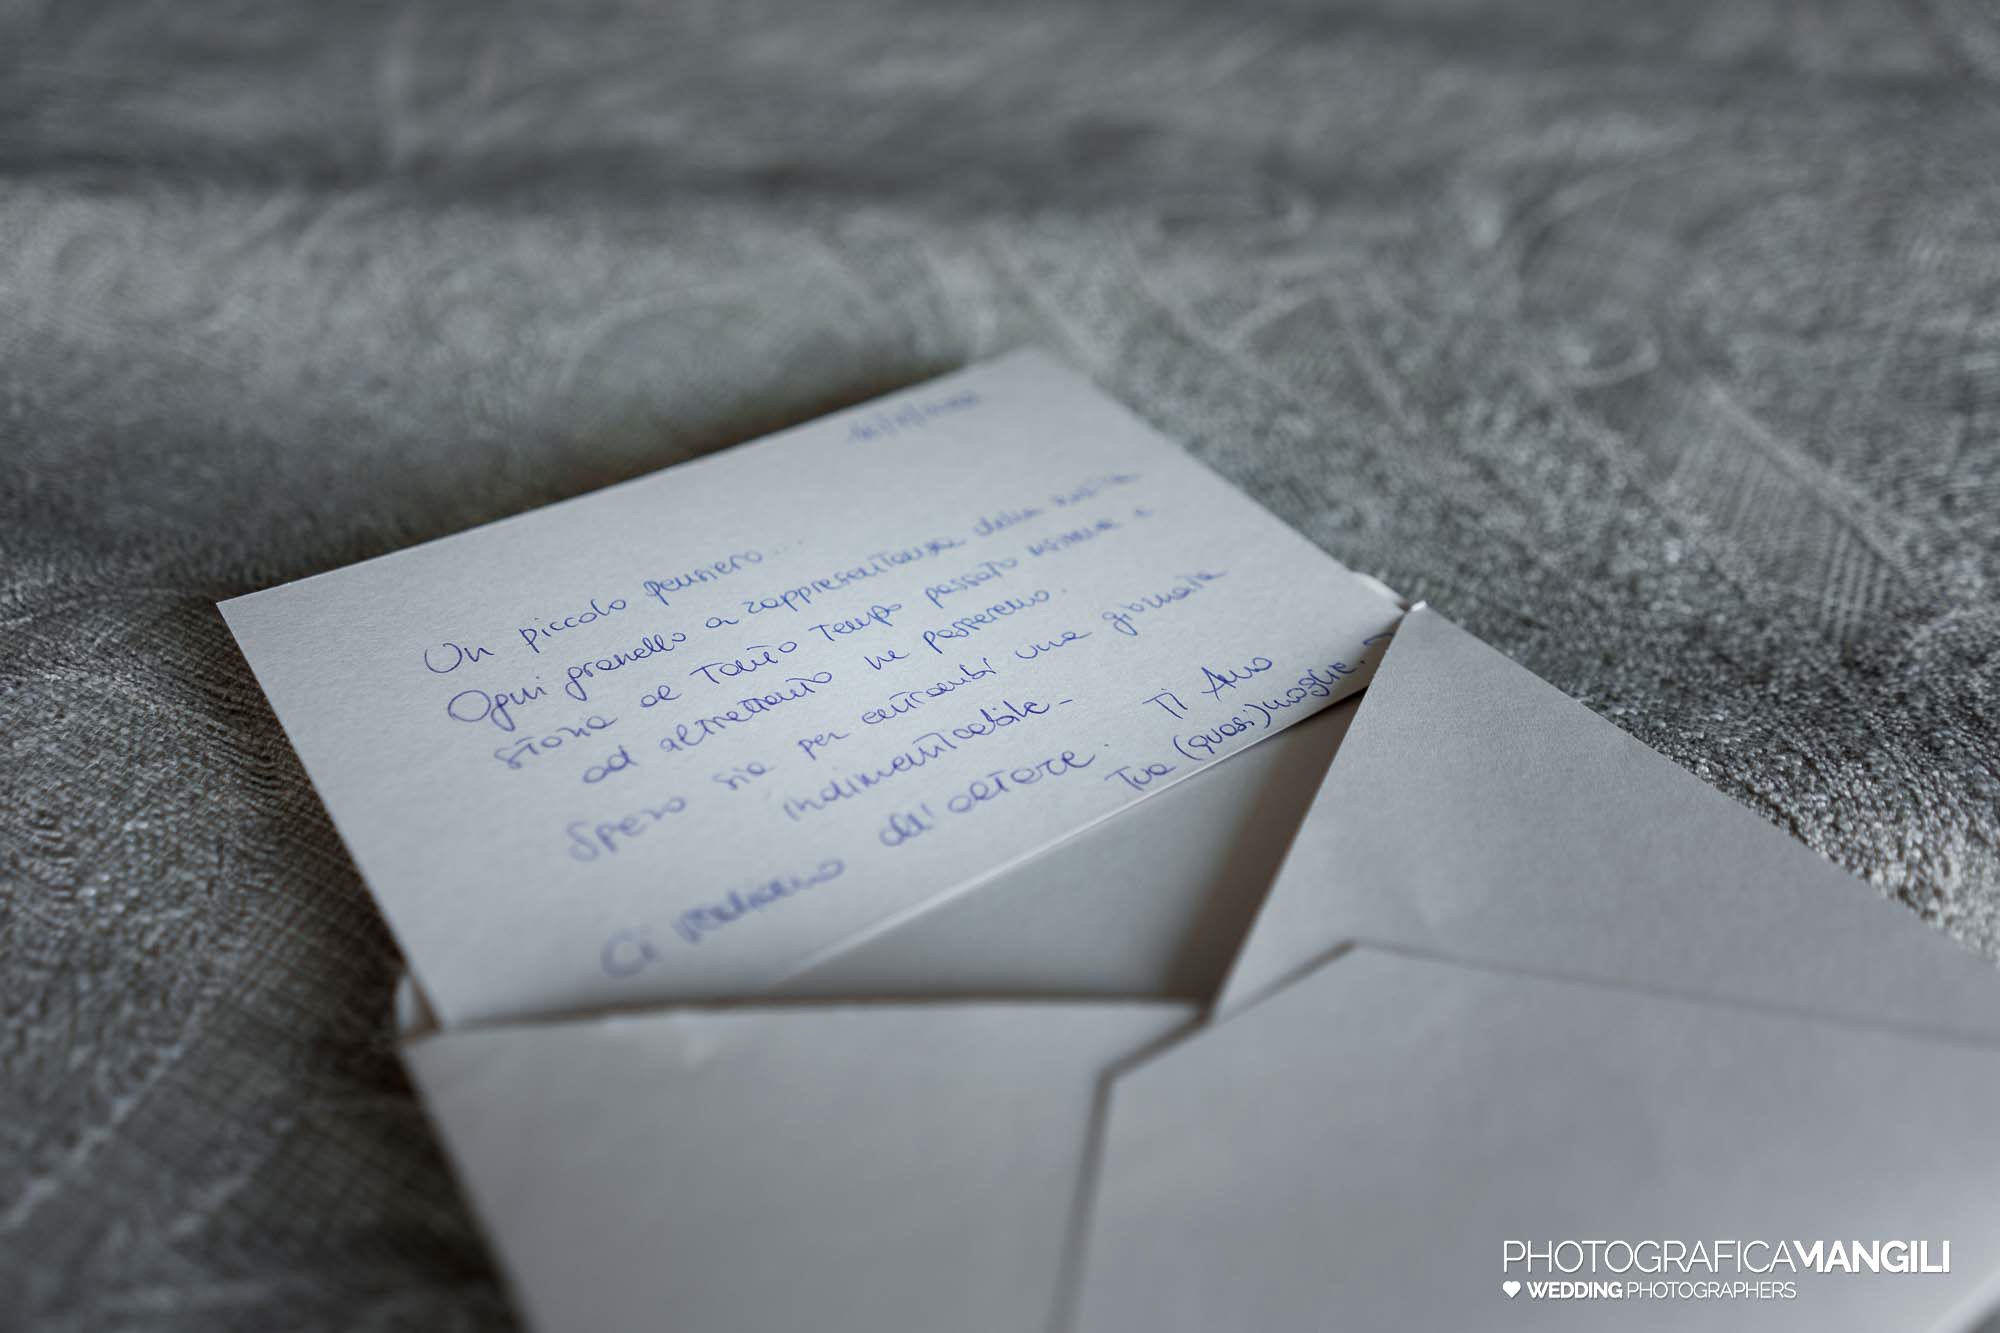 Un piccolo pensiero...
Ogni granello a rappresentanza della nostra
storia al tanto tempo passato insieme e
ad altrettanto ne passeremo.
Spero sia per entrambi una giornata
indimenticabile-
Ci vediamo all'altare. Ti Amo
Tua (quasi) moglie.
PHOTOGRAFICAMANGILI
WEDDING PHOTOGRAPHERS